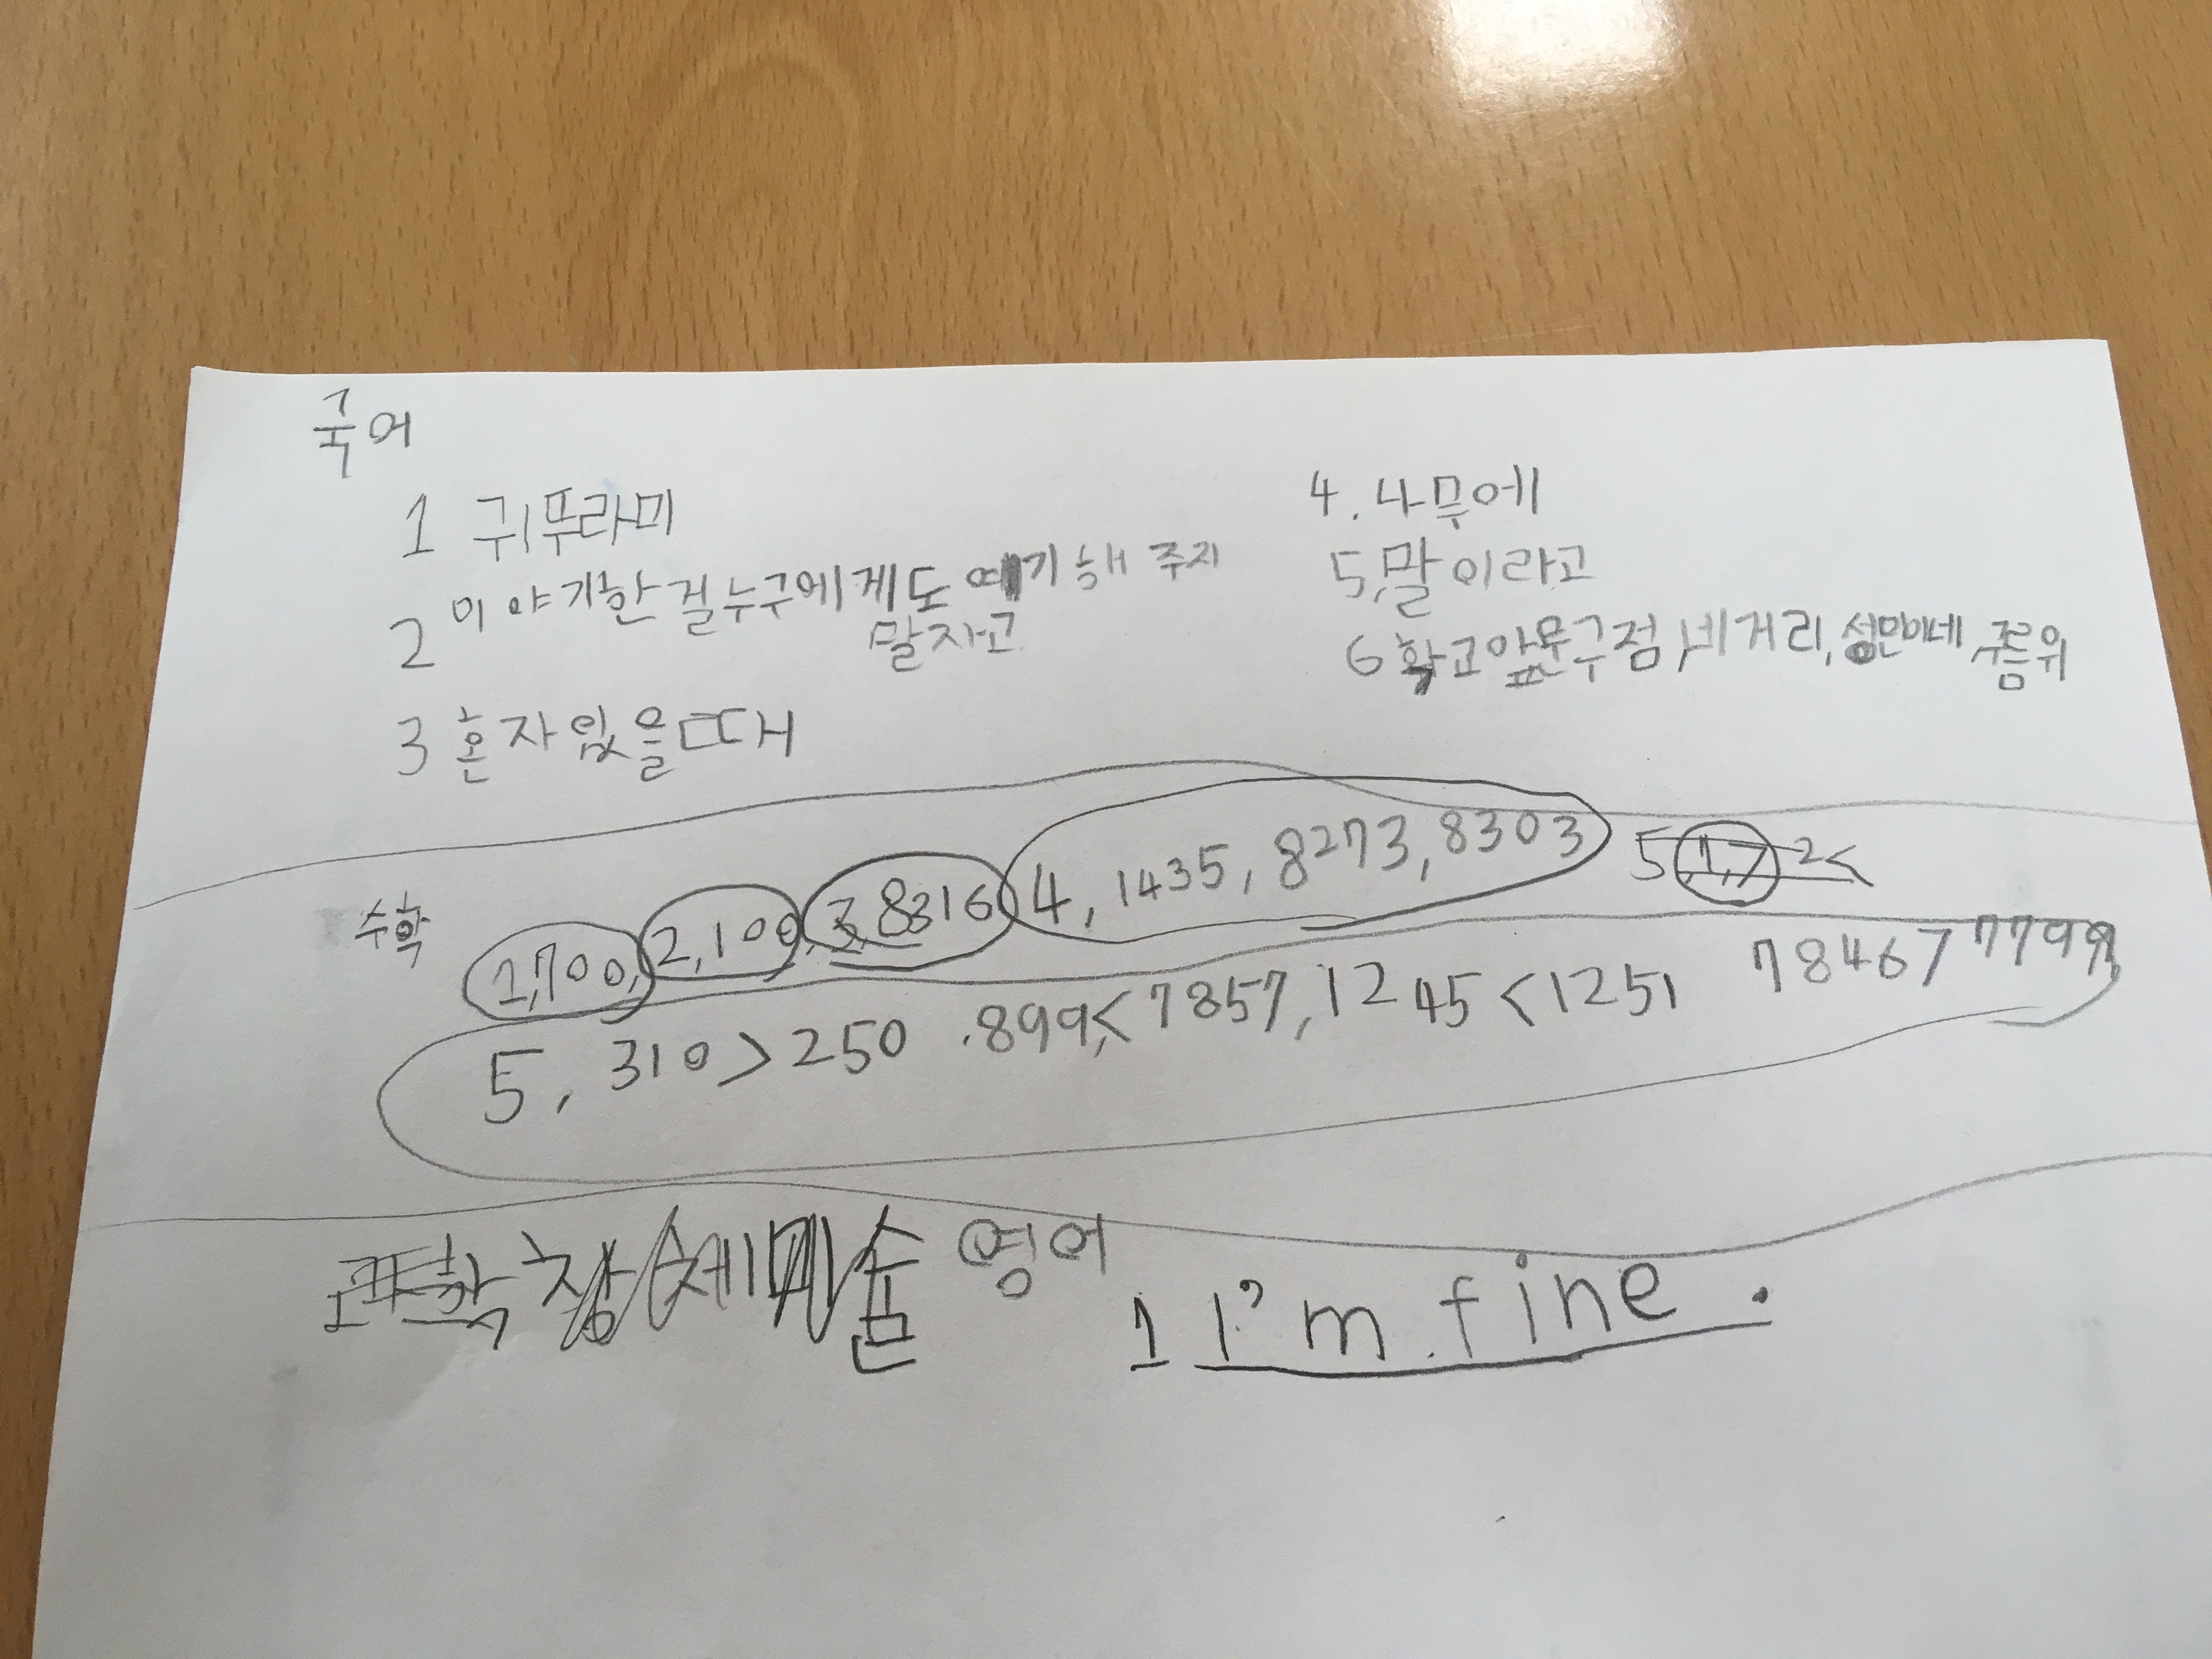 국어
1 귀뚜라미
2 이야기한 걸 누구에게도 얘기해 주지
말자고
3 혼자 있을 때
4. 나무에
5, 말이라고
6 학교 앞 문구점, 네거리, 성민이네, 구름 위
수학
1, 700, 2, 100, 3, 8316 4, 1435, 8273, 8303 5, 1, 7 2<
5, 310 > 250 . 899, < 7857, 1245 < 1251 7846 > 7799,
영어
1 I'm fine.